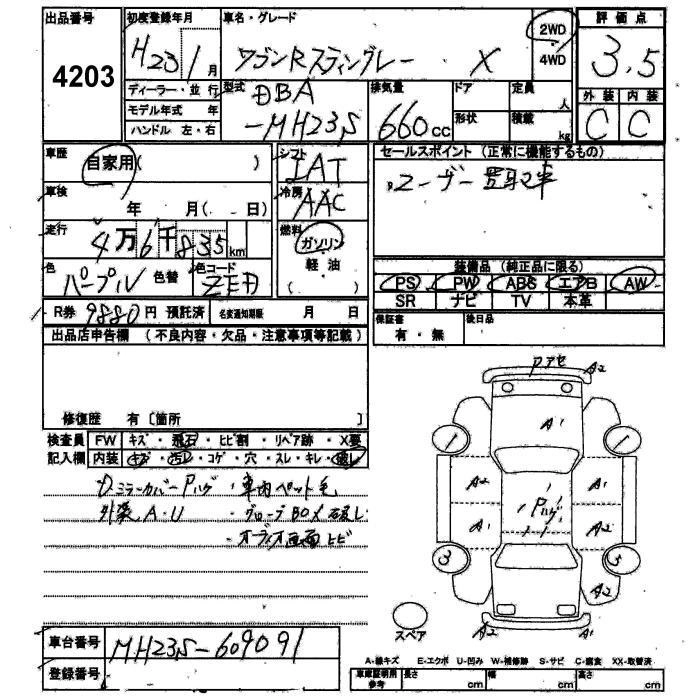 出品番号
4203
初度登録年月
H23 1月
車名・グレード
ワゴンRスティングレー X
2WD
・
4WD
評価点
3.5
外装 内装
C C
ディーラー・並行
モデル年式 年
ハンドル 左・右
型式
DBA
-MH23S
排気量
660cc
ドア
形状
定員
人
積載
kg
車歴
自家用( )
車検
年 月(. . 日)
走行
4万6千835km
色
パープル 色替
色コード
ZED
シフト
IAT
冷房
AAC
燃料
ガソリン
軽・油
( )
セールスポイント(正常に機能するもの)
ユーザー買取車
装備品(純正品に限る)
PS PW ABS エアB AW
SR ナビ TV 本革
R券 9880円 預託済 名変通知期限 月 日
保証書
有・無
後日品
出品店申告欄(不良内容・欠品・注意事項等記載)
修復歴 有〔箇所 〕
検査員
記入欄
FW キズ・飛石・ヒビ割・リペア跡・X要
内装 キズ・汚レ・コゲ・穴・スレ・キレ・破レ
ミラーカバーPハゲ ・車内ペット毛
外装A・U ・グローブBOX破レ
・オーディオ画面ヒビ
Pアセ A2
A1
A2 A2
Pハゲ
A1 A1
3 5
A2
A2 A1
スペア
車台番号 MH23S-609091
登録番号
A-線キズ E-エクボ U-凹み W-補修跡 S-サビ C-腐食 XX-取替済
車庫証明用
参考
長さ cm 幅 cm 高さ cm